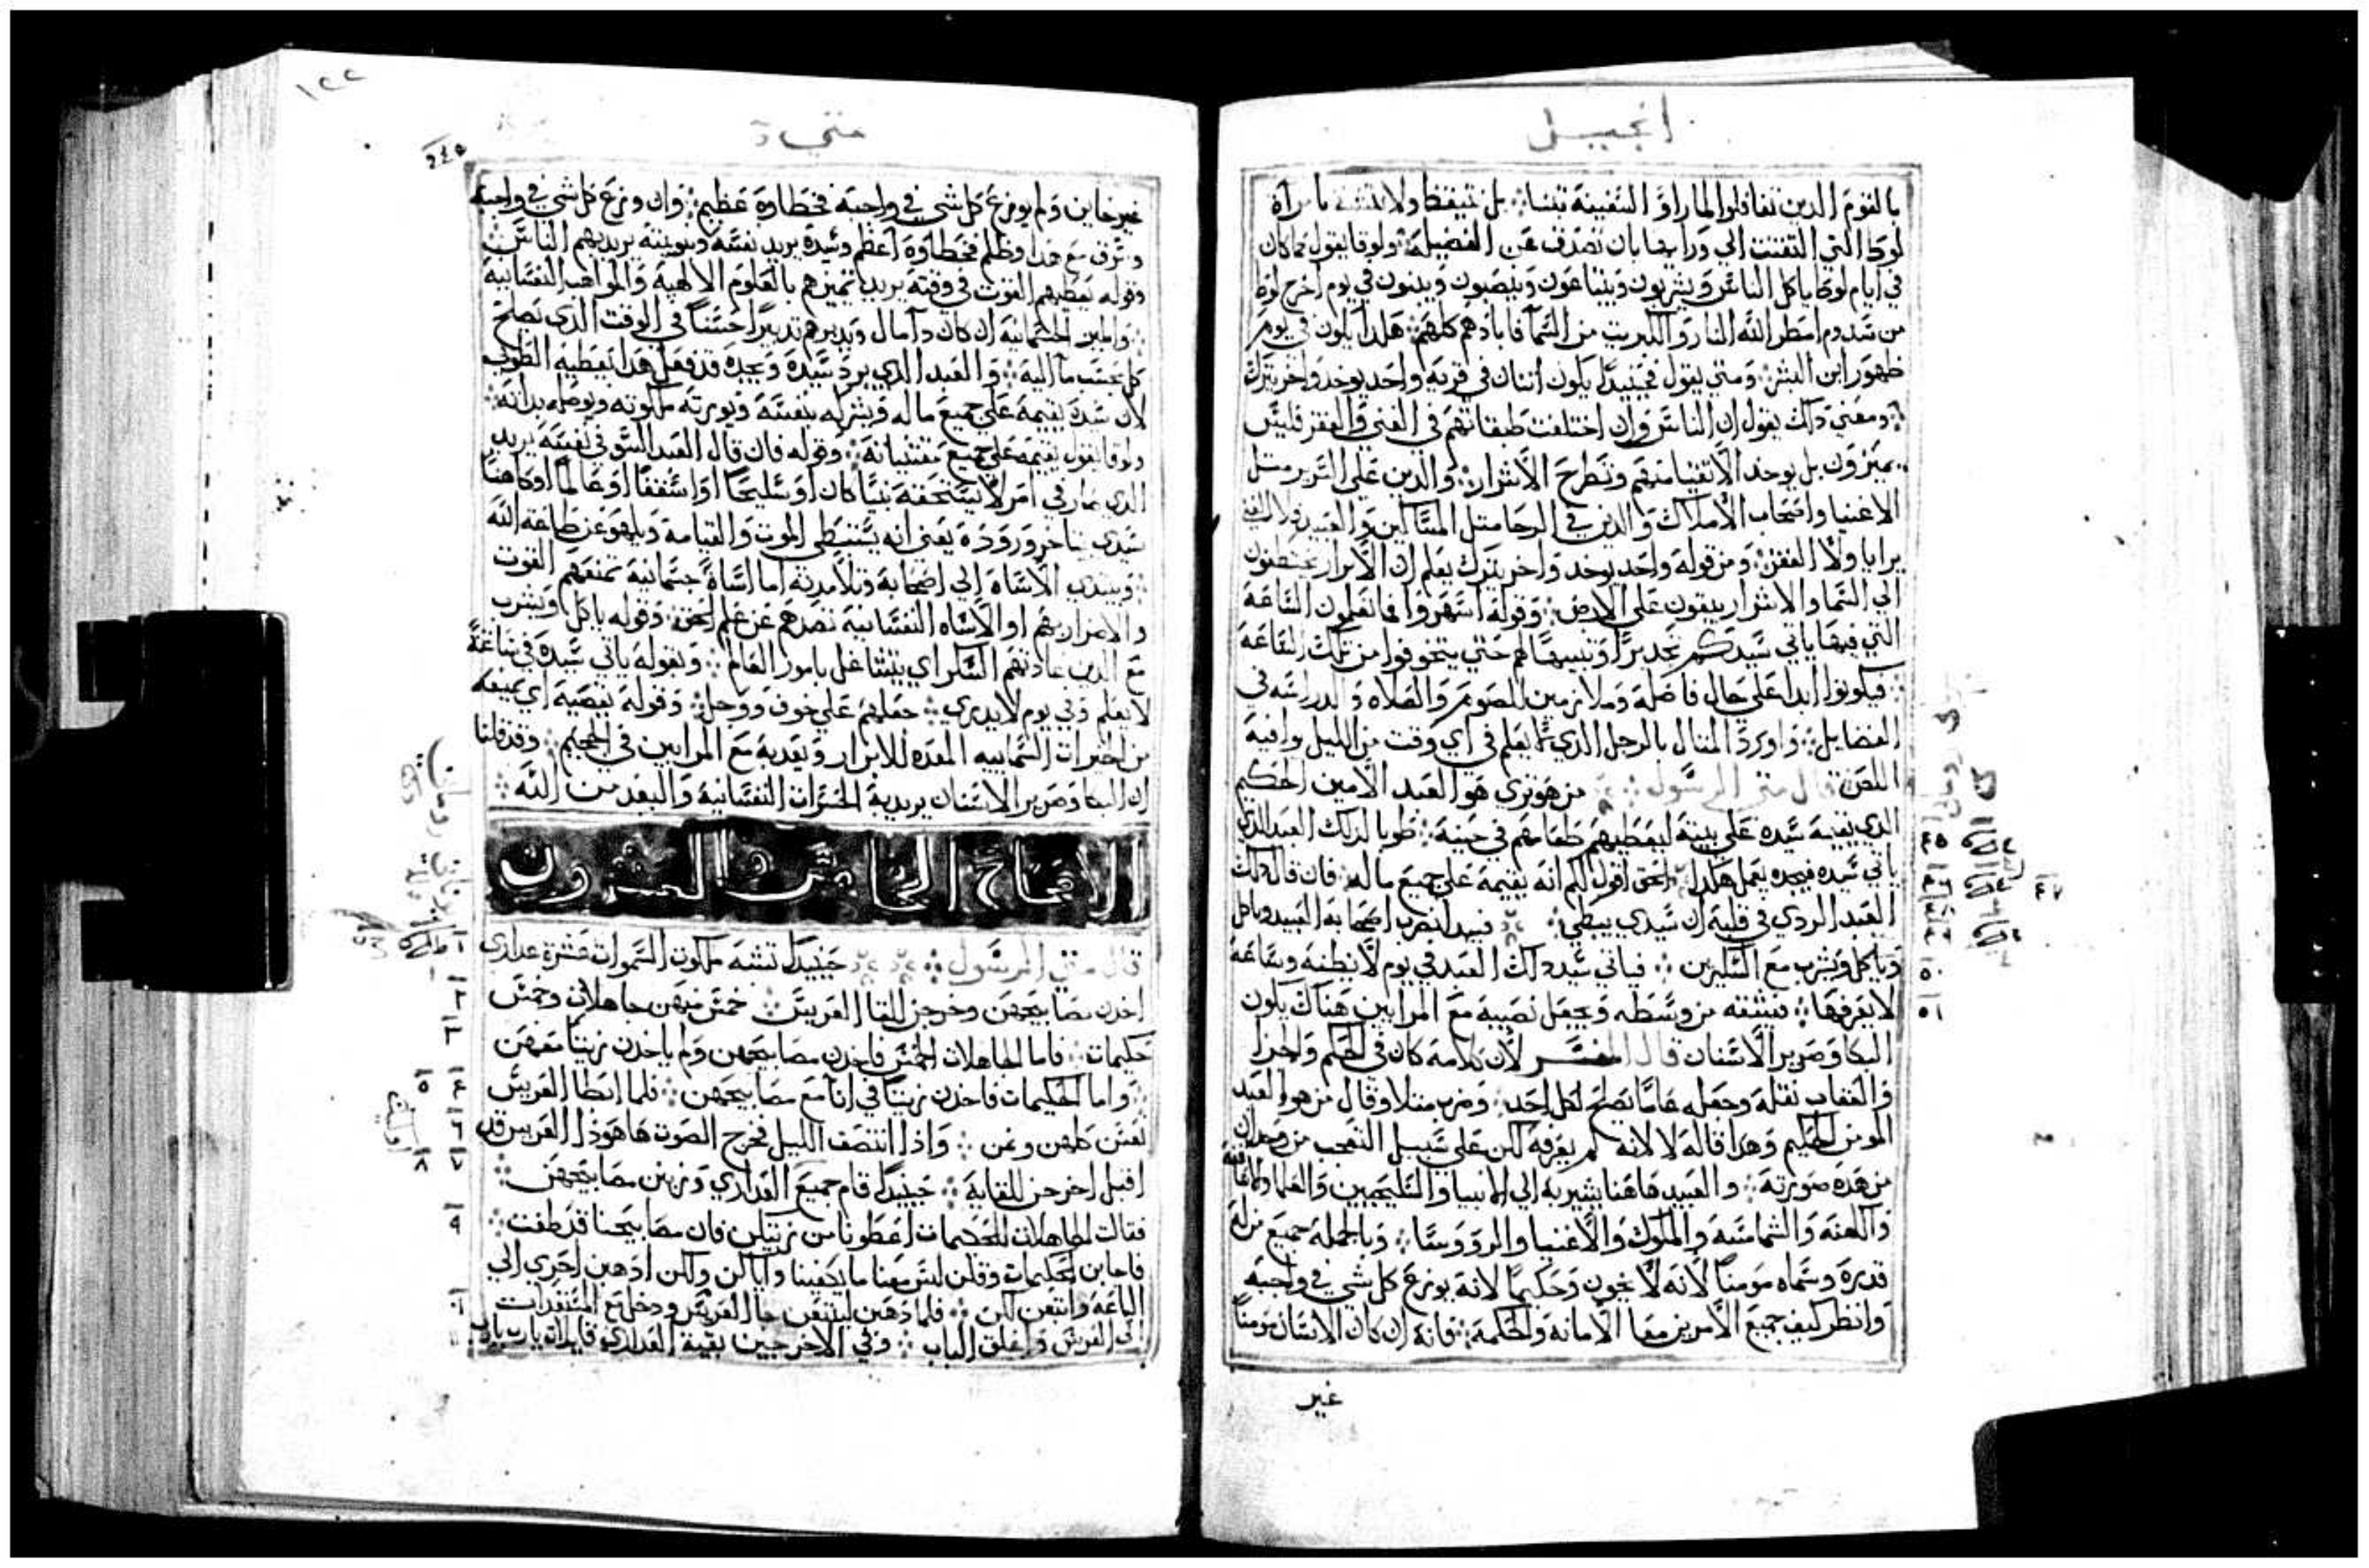 انجيل
بالقوم الذين تغافلوا لما راوا السفينة تنشا بل تيقظوا ولا بامراة
لوط التي التفتت الي ورايها بان تصدف عن الفضيلة ولوقا يقول كما كان
في ايام لوط ياكل الناس ويشربون ويبتاعون وينصبون ويبنون في يوم اخرج لوط
من سدوم امطر الله النار والكبريت من السما فابادهم كلهم هكدا يكون في يوم
ظهور ابن البشر ومتي يقول فحينيدا يكون اتنان في قرية واحد يوخد واخر يترك
ومعني دلك يقول ان الناس وان اختلفت طبقاتهم في الغني والفقر فليس
يميزون بل يوخد الاتقيا منهم وتطرح الاشرار والدين علي السرير متل
الاغنيا واصحاب الاملاك والذين في الرحا متل المساكين والعبيد فلا الغني
برايا ولا الفقر ومن قوله واحد يوخد واخر يترك يعلم ان الابرار يختطفون
الي السما والاشرار يبقون علي الارض وقوله اسهروا فما تعلمون الساعة
التي فيها ياتي سيدكم تحديرا وتنبيها لهم حتي يتخوفوا من تلك الساعة
فيكونوا ابدا علي حال فاضلة وملازمين للصوم والصلاه والدراسه في
الفضايل واورد المتال بالرجل الدي لم يعلم في اي وقت من الليل وافيه
اللص قال متي الرسول من هو تري هو العبد الامين الحكيم
الدي يقيمه سيده علي بيته ليعطيهم طعامهم في حينه طوبا لدلك العبد الدي
ياتي سيده فيجده يعمل هكدا الحق اقول لكم انه يقيمه علي جميع ماله فان قال دلك
العبد الردي في قلبه ان سيدي يبطي فيبدا يضرب اصحابه العبيد وياكل
وياكل ويشرب مع السكيرين فياتي سيد دلك العبد في يوم لا يظنه وساعة
لا يعرفها فيشقه من وسطه ويجعل نصيبه مع المرايين هناك يكون
البكا وصرير الاسنان قال المفسر لان كلامه كان في الحكم والجزا
والعقاب نقله وجعله عاما يصلح لكل احد وضرب متلا وقال من هو العبد
المومن الحكيم وهدا قاله لا لانه لم يعرفه لكن علي سبيل التعجب من وجدان
من هده صورته والعبيد هاهنا يشير به الي الانبيا والسليحيين والعلما والاساقفة
والكهنة والشمامسة والملوك والاغنيا والرووسا وبالجملة جميع من له
قدرة وسماه مومنا لانه لا يخون وحكيما لانه يوزع كل شي في واجبه
وانظر كيف جمع الامرين معا الامانة والحكمة فانه ان كان الانسان مومنا
غير
٤٥
٥٠
٥١
١٢٢
متي
غير خاين ولم يوزع كل شي في واجبه فخطاوه عظيم وان وزع كل شي في واجبه
وسرف مع هدا وظلم فخطاوه اعظم وسيده يريد نفسه وبيته يريد بهم الناس
وقوله يعطيهم القوت في وقته يريد تميزهم بالعلوم الالهية والمواهب النفسانية
والمين الجسمانية ان كان دا مال ويدبرهم تدبيرا حسنا في الوقت الدي يصلح
كل بحسب ماله والعبد الدي يرد سيده ويجده قد فعل هدا يعطيه الطوبي
لان سيده يقيمه علي جميع ماله ويشركه بنفسه ويورته ملكوته ويوصله بداته
ولوقا يقول يقيمه علي جميع مقتنياته وقوله فان قال العبد السو في نفسه يريد
الدي صار في امر لا يستحقه نبيا كان او سليحا او اسقفا او عالما او كاهنا
سيدي يتاخر وروده يعني انه يستبطي الموت والقيامة ويلهو عن طاعة الله
ويبتدي الاساه الي اصحابه وتلامدته اما اساة جسمانية تمنعهم القوت
والاضرار بهم او الاساه النفسانية تصدهم عن علم الحق وقوله ياكل ويشرب
مع الدين عادتهم السكر اي يتشاغل بامور العالم وبقوله ياتي سيده في ساعة
لا يعلم وفي يوم لا يدري جعلهم علي خوف ووجل وقوله نصيبه اي يمنعه
من الخيرات السماييه المعده للابرار ويعدبه مع المرايين في الجحيم وقد قلنا
ان البكا وصرير الاسنان يريد به الحسرات النفسانية والبعد من الله
الاصحاح الخامس والعشرون
قال متي الرسول حينيدا تشبه ملكوت السموات عشرة عداري
اخدن مصابيحهن وخرجن للقا العريس خمس منهن جاهلات وخمس
حكيمات فاما الجاهلات الخمس فاخدن مصابيحهن ولم ياخدن زيتا معهن
واما الحكيمات فاخدن زيتا في انا مع مصابيحهن فلما ابطا العريس
نعسن كلهن ونمن واذا انتصف الليل فخرج الصوت ها هودا العريس قد
اقبل اخرجن للقايه حينيدا قام جميع العداري وزين مصابيحهن
فقالت الجاهلات للحكيمات اعطونا من زيتكن فان مصابيحنا قد طفت
فاجابن الحكيمات وقلن ليس معنا ما يكفينا واياكن ولكن ادهبن احري الي
الباعة وابتعن لكن فلما دهبن ليبتعن جا العريس ودخل مع المستعدات
الي العرس واغلق الباب وفي الاخر جين بقية العداري قايلات يارب يارب